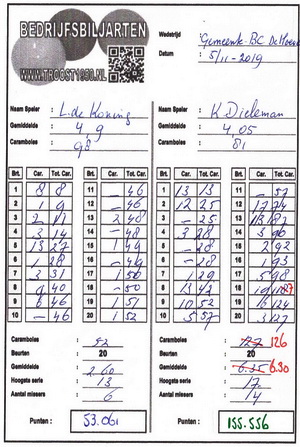 BEDRIJFSBILJARTEN
WWW.TROOST1950.NL
Wedstrijd
Gemeente-BC
Datum : 5/11-2019
Naam Speler : L. de Koning
Gemiddelde : 4,9
Caramboles : 98
Naam Speler : K Dieleman
Gemiddelde : 4,05
Caramboles : 81
Brt. Car. Tot. Car. Brt. Car. Tot. Car. Brt. Car. Tot. Car. Brt. Car. Tot. Car.
1 8 8 11 — 46 1 13 13 11 — 57
2 1 9 12 — 46 2 12 25 12 17 74
3 2 11 13 2 48 3 — 25 13
4 3 14 14 — 48 4 3 28 14
5 13 27 15 1 49 5 — 28 15 2 92
6 1 28 16 — 49 6 — 28 16 1 93
7 3 31 17 1 50 7 1 29 17 5 98
8 9 40 18 — 50 8 13 42 18
9 6 46 19 1 51 9 10 52 19
10 — 46 20 1 52 10 5 57 20 3 127
Caramboles : 52
Beurten : 20
Gemiddelde : 2.60
Hoogste serie : 13
Aantal missers : 6
Punten : 53.061
Caramboles : 127 126
Beurten : 20
Gemiddelde : 6.35 6.30
Hoogste serie : 17
Aantal missers : 14
Punten : 155.556